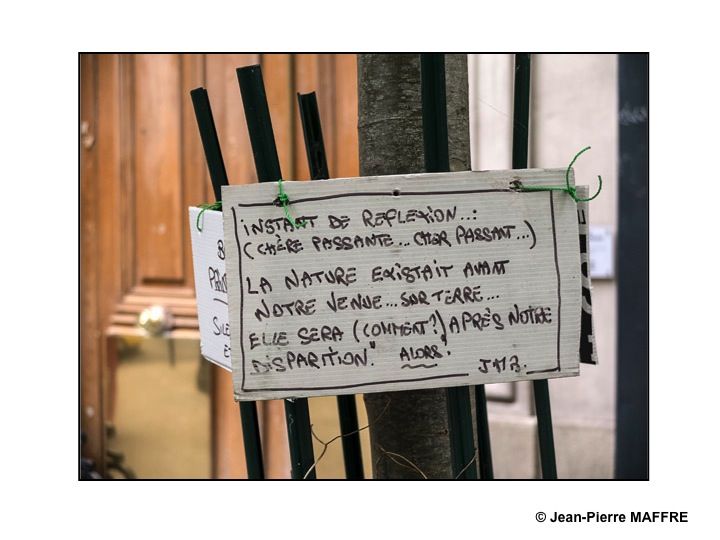 INSTANT DE REFLEXION...:
(CHÈRE PASSANTE... CHER PASSANT...)
LA NATURE EXISTAIT AVANT
NOTRE VENUE... SUR TERRE...
ELLE SERA (COMMENT?) APRÈS NOTRE
DISPARITION." ALORS!
© Jean-Pierre MAFFRE